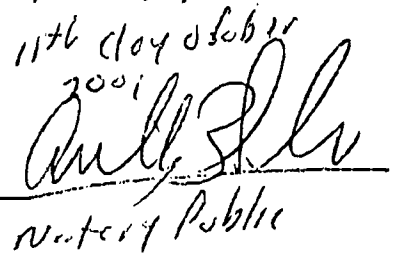 11th day October
2001
Notary Public